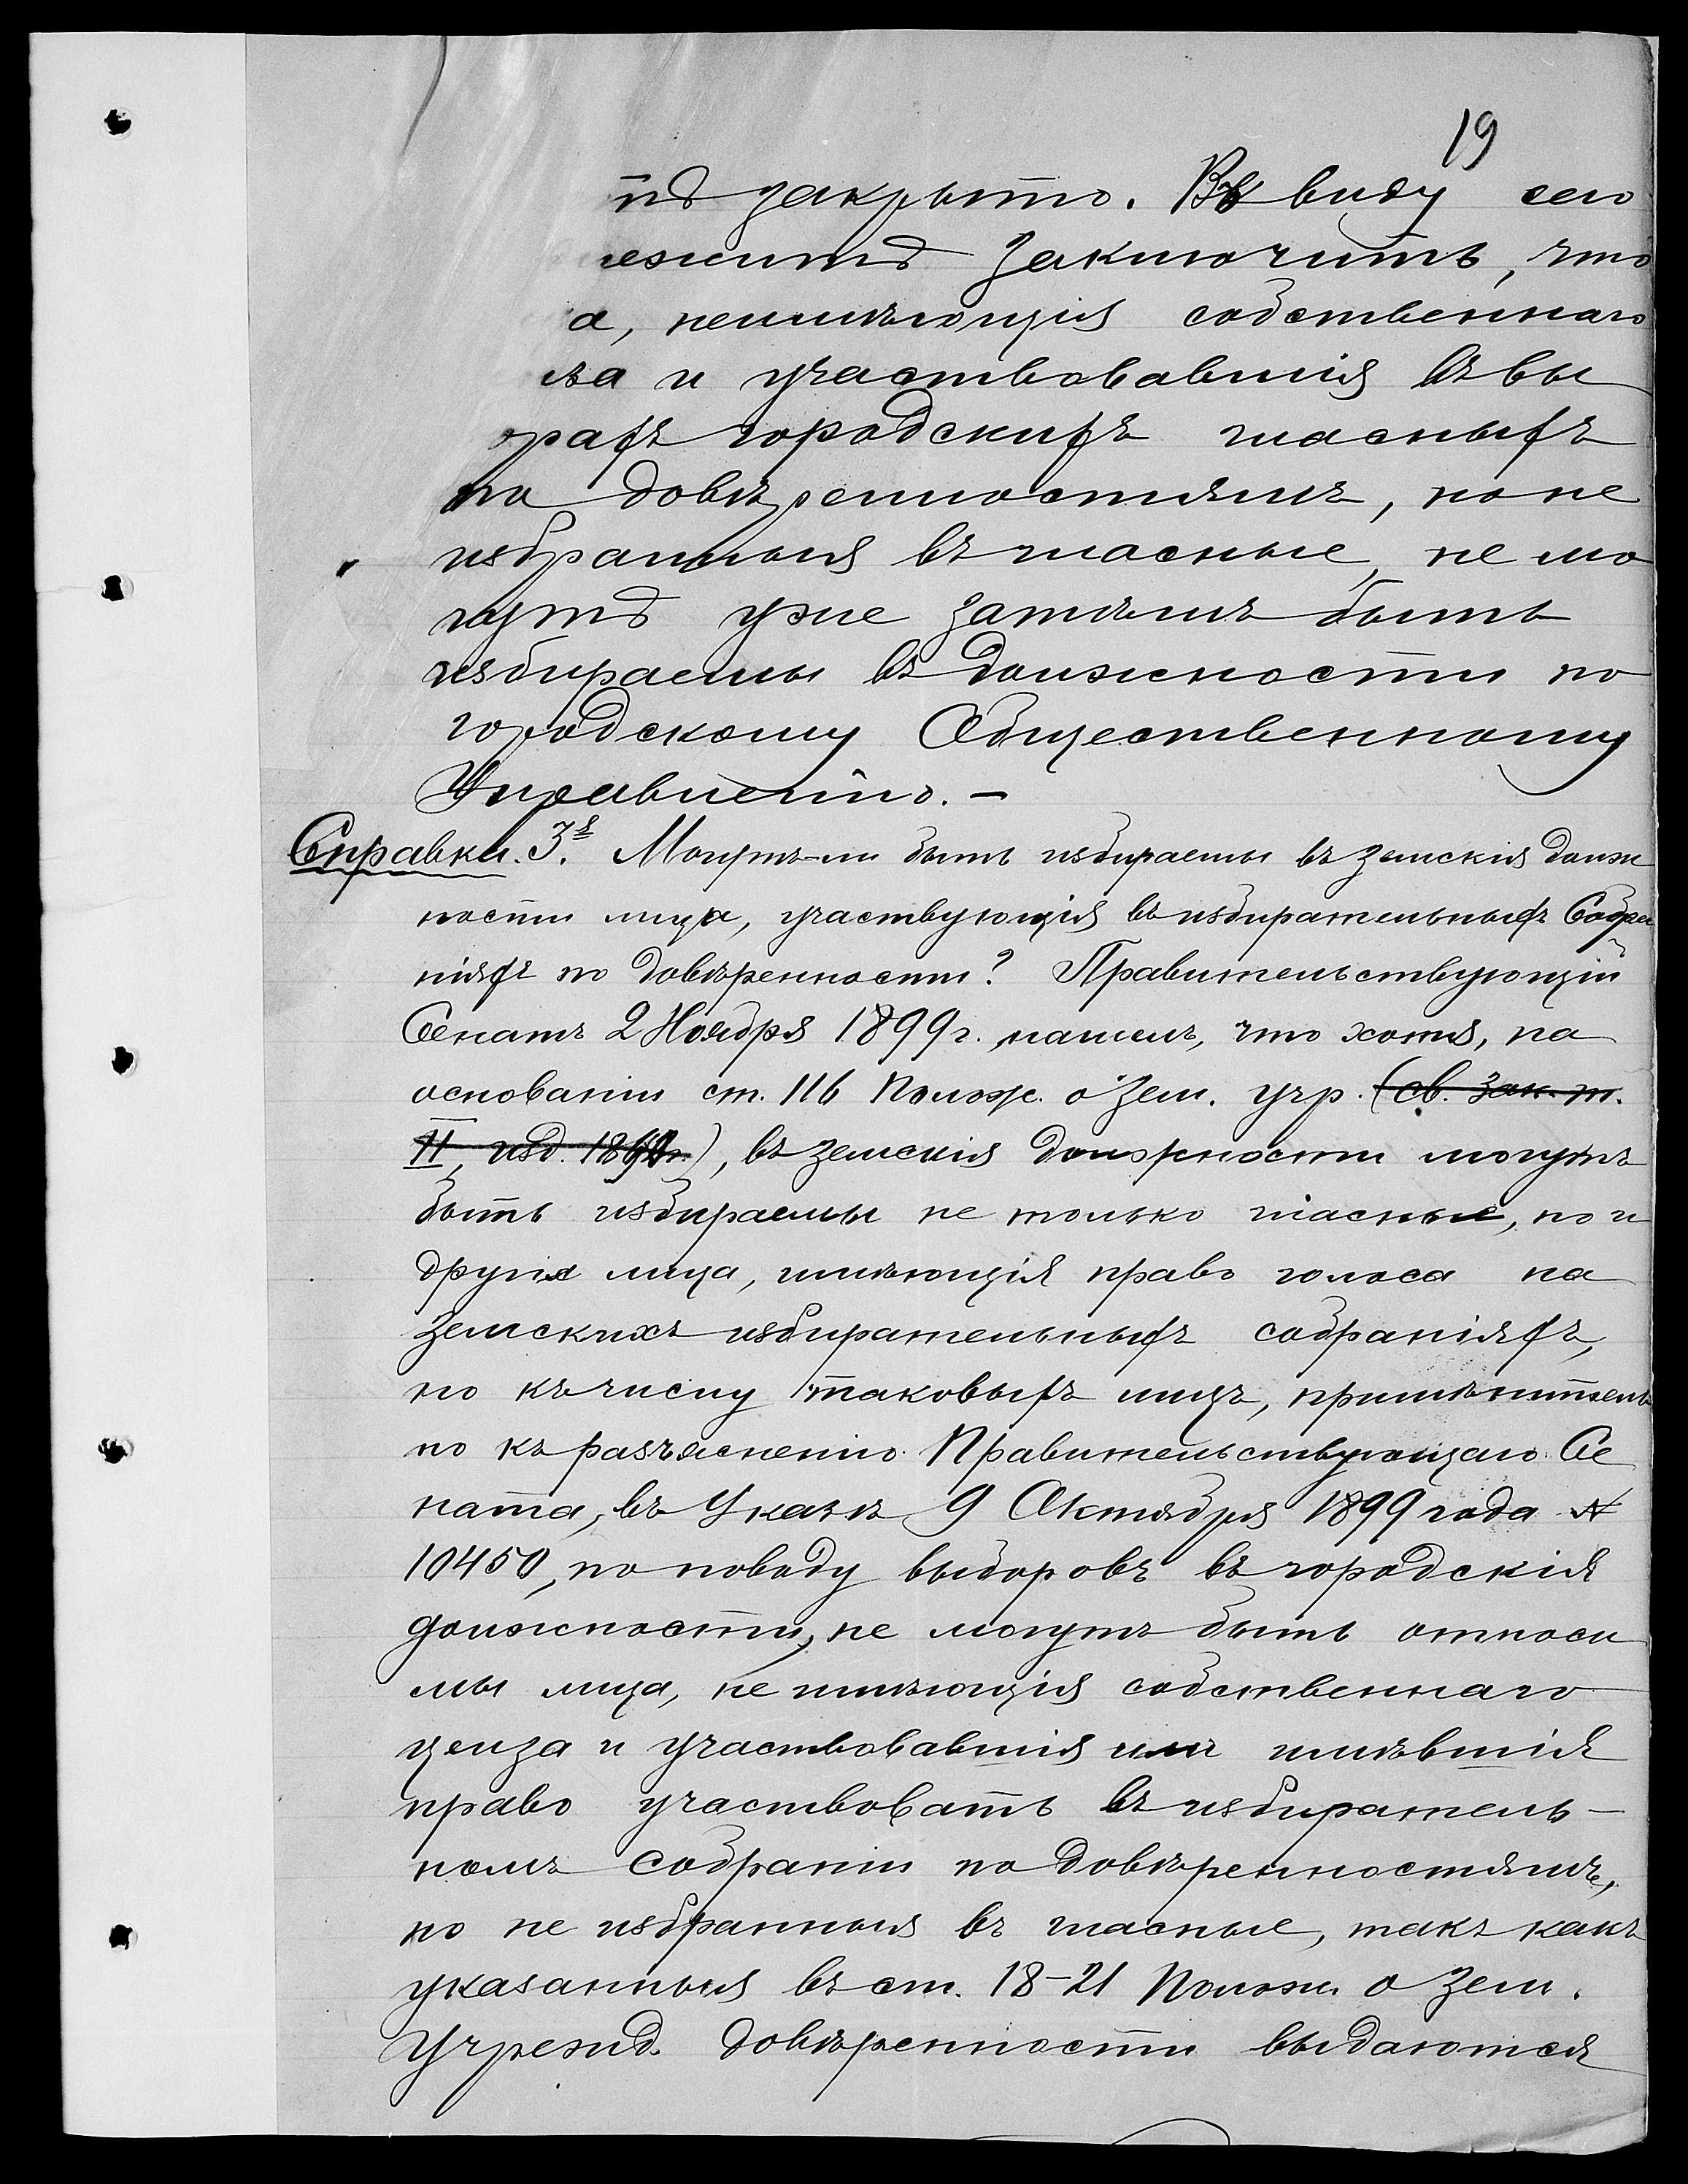 19
тъ закрыто. Въ виду сего
лежитъ заключить, что
а, неимѣющія собственнаго
за и участвовавшія въ вы
орахъ городскихъ гласныхъ
по довѣренностямъ, но не
избранныя въ гласные, не мо
гутъ уже затѣмъ быть
избираемы въ должности по
городскому Общественному
Управленію. —
Справка. 3я. Могутъ-ли быть избираемы въ земскія долж
ности лица, участвующія въ избирательныхъ Собра
ніяхъ по довѣренности? Правительствующій
Сенатъ 2 Ноября 1899 г. нашелъ, что хотя, на
основаніи ст. 116 Полож. о зем. учр. (св. зак. т.
II, изд. 1892 г.), въ земскія должности могутъ
быть избираемы не только гласные, но и
другія лица, имѣющія право голоса на
земскихъ избирательныхъ собраніяхъ,
но къ числу таковыхъ лицъ, примѣнитель
но къ разъясненію Правительствующаго Се
ната, въ Указѣ 9 Октября 1899 года №
10450, по поводу выборовъ въ городскія
должности, не могутъ быть относи
мы лица, не имѣющія собственнаго
ценза и участвовавшія или имѣвшія
право участвовать въ избиратель-
номъ собраніи по довѣренностямъ,
но не избранныя въ гласные, такъ какъ
указанныя въ ст. 18-21 Полож. о Зем.
Учрежд. довѣренности выдаются